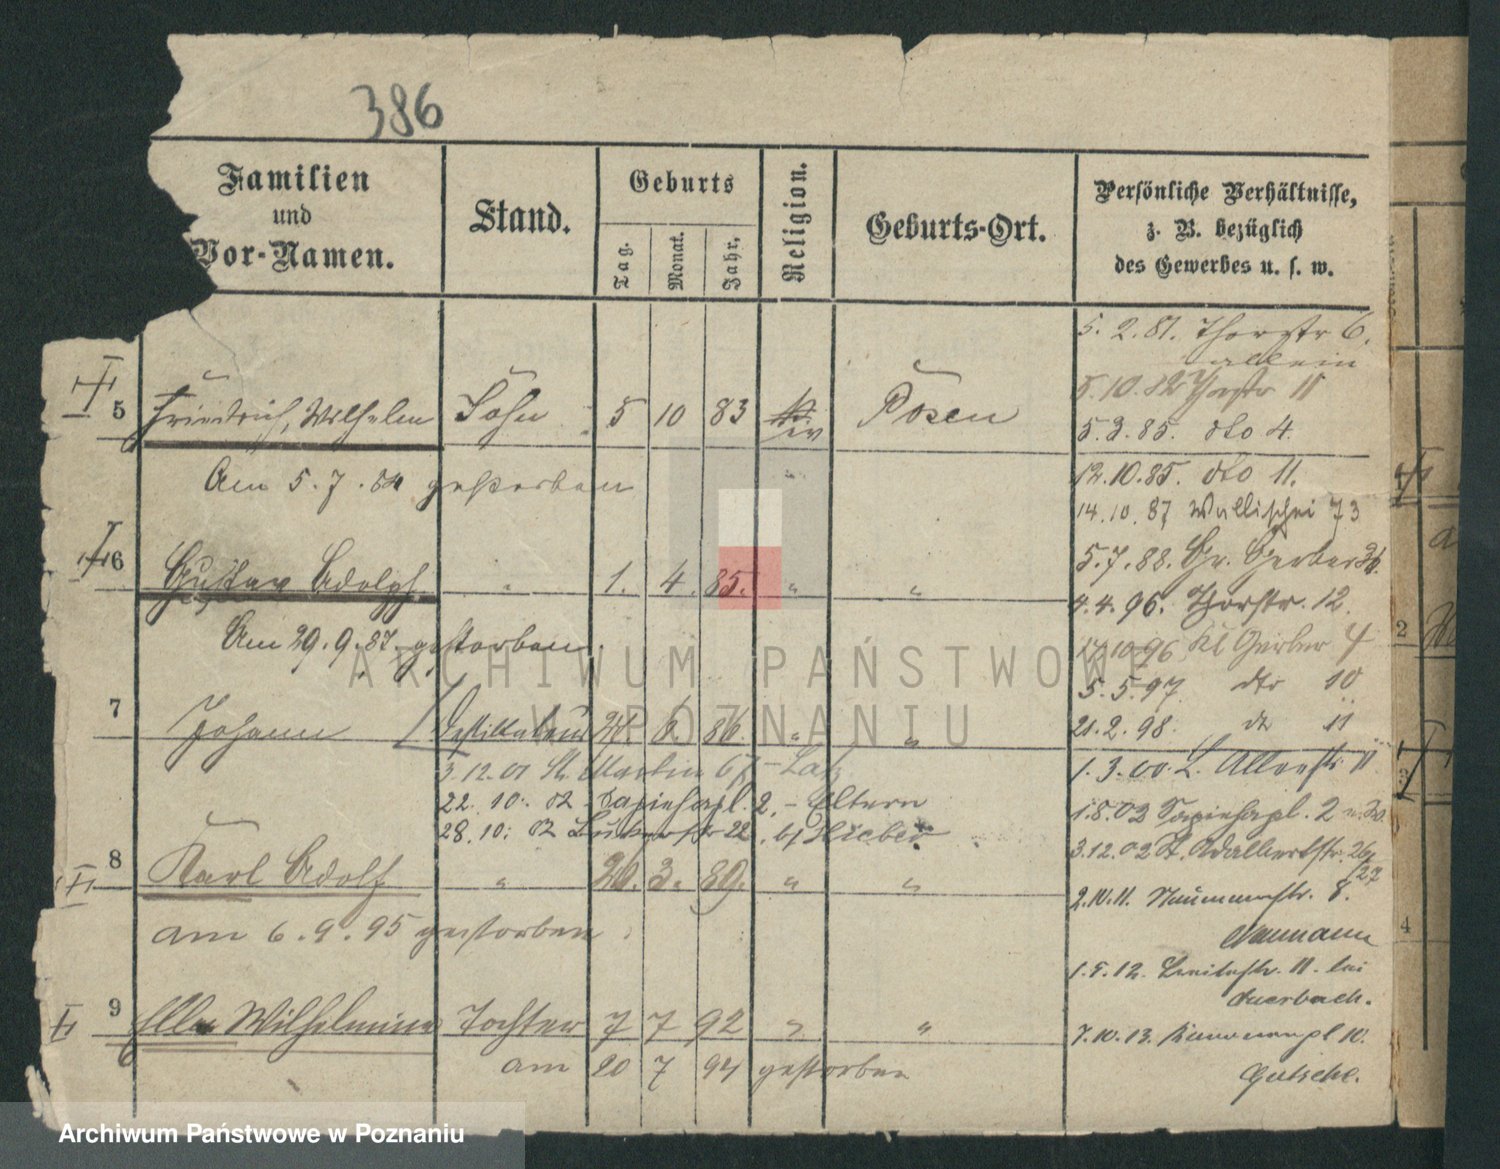 386
Familien
und
Vor-Namen.
Stand.
Geburts
Tag.
Monat.
Jahr.
Religion.
Geburts-Ort.
Persönliche Verhältnisse,
z. B. bezüglich
des Gewerbes u. s. w.
5 Friedrich, Wilhelm Sohn 5 10 83 Posen
Am 5.7.84 gestorben
6 Gustav Adolph " 1. 4. 85. " "
Am 29.9.87 gestorben
7 Johann 24. 6 86. " "
3.12.01 St. Martin 67
22.10. 02 Sapiehapl. 2, - Eltern
28.10. 02 22. b/
8 Karl Adolf " 3. 89. " "
am 6.9.95 gestorben
9 Ella Wilhelmine Tochter 7 7 92 " "
am 20 7 94 gestorben
5. 2. 81. Thorstr 6.
allein
5.10.82 Thorstr 11
5.3.85. dto 4.
12.10.85. dto 11.
14.10.87 Wallischei 73
5.7.88. Gr. Gerber
4.4.96. Thorstr. 12.
17.10.96 Kl Gerber 4
5.5.97. dto 10
21.2.98. dto 11
1.3.00. L. 11
1.8.02 Sapiehapl. 2
3.12.02 St. Adalbertstr. 26/27
2.10.11. Naumannstr. 8.
Naumann
12. Breitestr. 11. bei
Auerbach.
7.10.13. 10.
Gutsche.
2
3
4
ARCHIWUM PAŃSTWOWE
W POZNANIU
Archiwum Państwowe w Poznaniu